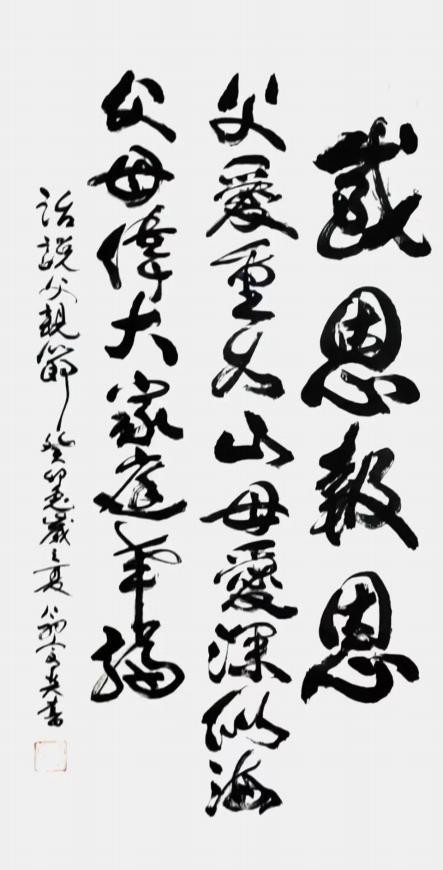 感恩報恩
父愛重如山母愛深似海
父母偉大家庭幸福
話說父親節癸卯兔歲之夏書